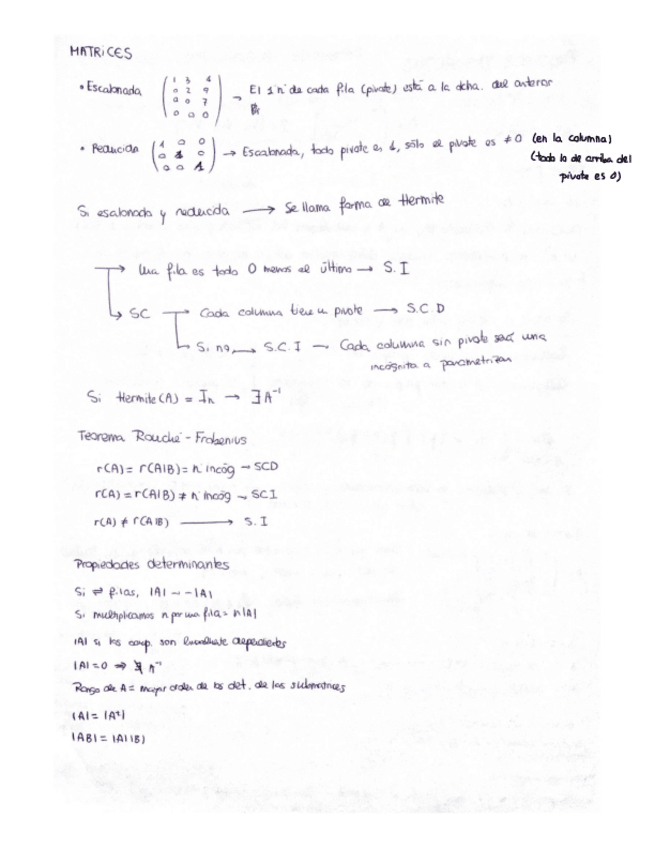 MATRICES
• Escalonada (1 3 4 / 0 2 9 / 0 0 7 / 0 0 0) → El 1 nº de cada fila (pivote) está a la dcha. del anterior
• Reducida (1 0 0 / 0 1 0 / 0 0 1) → Escalonada, todo pivote es 1, sólo el pivote es ≠ 0 (en la columna)
(todo lo de arriba del
pivote es 0)
Si escalonada y reducida → Se llama forma de Hermite
→ Una fila es todo 0 menos el último → S.I
↳ SC → Cada columna tiene un pivote → S.C.D
↳ Si no → S.C.I → Cada columna sin pivote será una
incógnita a parametrizar
Si Hermite(A) = In → ∃A⁻¹
Teorema Rouché - Frobenius
r(A) = r(A|B) = nº incóg → SCD
r(A) = r(A|B) ≠ nº incóg → SCI
r(A) ≠ r(A|B) → S.I
Propiedades determinantes
Si ⇌ filas, |A| → -|A|
Si multiplicamos n por una fila = n|A|
|A| si los son linealmente dependientes
|A| = 0 ⇒ ∄ A⁻¹
Rango de A = mayor orden de los det. de las submatrices
|A| = |Aᵗ|
|AB| = |A||B|